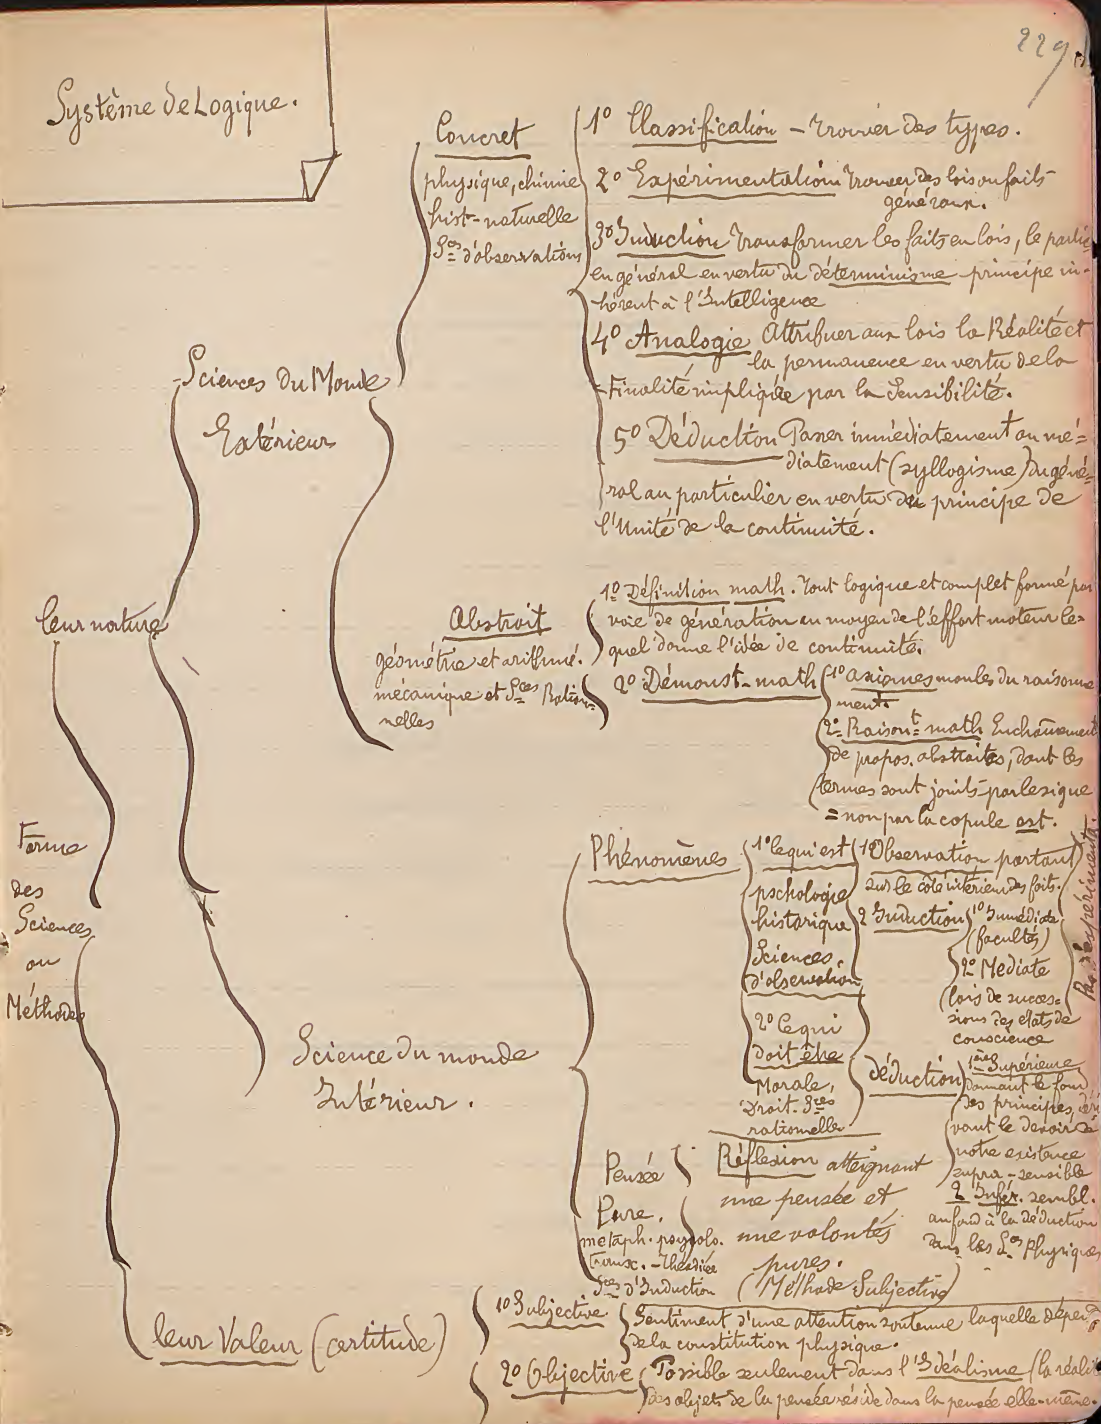 229.
Système de Logique.
Forme
des
Sciences
ou
Méthodes
leur nature
Sciences du Monde
Extérieur
Concret
physique, chimie
hist-naturelle
Sces d'observations
1º Classification - Trouver des types.
2º Expérimentation Trouver des lois ou faits
généraux.
3º Induction Transformer les faits en lois, le partic
en général en vertu du déterminisme principe in-
hérent à l'Intelligence
4º Analogie Attribuer aux lois la Réalité et
la permanence en vertu de la
Finalité impliquée par la Sensibilité.
5º Déduction Passer immédiatement ou mé=
diatement (syllogisme) du géné=
ral au particulier en vertu du principe de
l'Unité de la continuité.
Abstrait
géométrie et arithmé.
mécanique et Sces Ration=
nelles
1º Définition math. Tout logique et complet formé par
voie de génération au moyen de l'effort moteur le=
quel donne l'idée de continuité.
2º Démonst-math
1º axiomes moules du raisonne
ment.
2º Raisont math Enchaînement
de propos. abstraites, dont les
termes sont joints par le signe
= non par la copule est.
Science du monde
Intérieur.
Phénomènes
1º Ce qui est
pschologie
historique
Sciences
d'observation
1º Observation portant
sur le côté intérieur des faits.
2 Induction
1º Immédiate
(facultés)
2º Mediate
lois de succes=
sions des états de
conscience
Pas d'expérimenta.
2º Ce qui
doit être
Morale,
Droit. Sces
rationnelle
déduction
1ère Supérieure
donnant le fond
des principes, déri
vant le devoir de
notre existence
supra-sensible
2 Infér. sembl.
au fond à la déduction
dans les Sces Physiques
Pensée
Pure.
metaph. psycolo.
transc. - Théodicée
Sces d'Induction
Réflexion atteignant
une pensée et
une volontés
pures.
(Méthode Subjective)
leur Valeur (certitude)
1º Subjective
Sentiment d'une attention soutenue laquelle dépend
de la constitution physique.
2º Objective
Possible seulement dans l'Idéalisme (la réalité
des objets de la pensée réside dans la pensée elle-même.